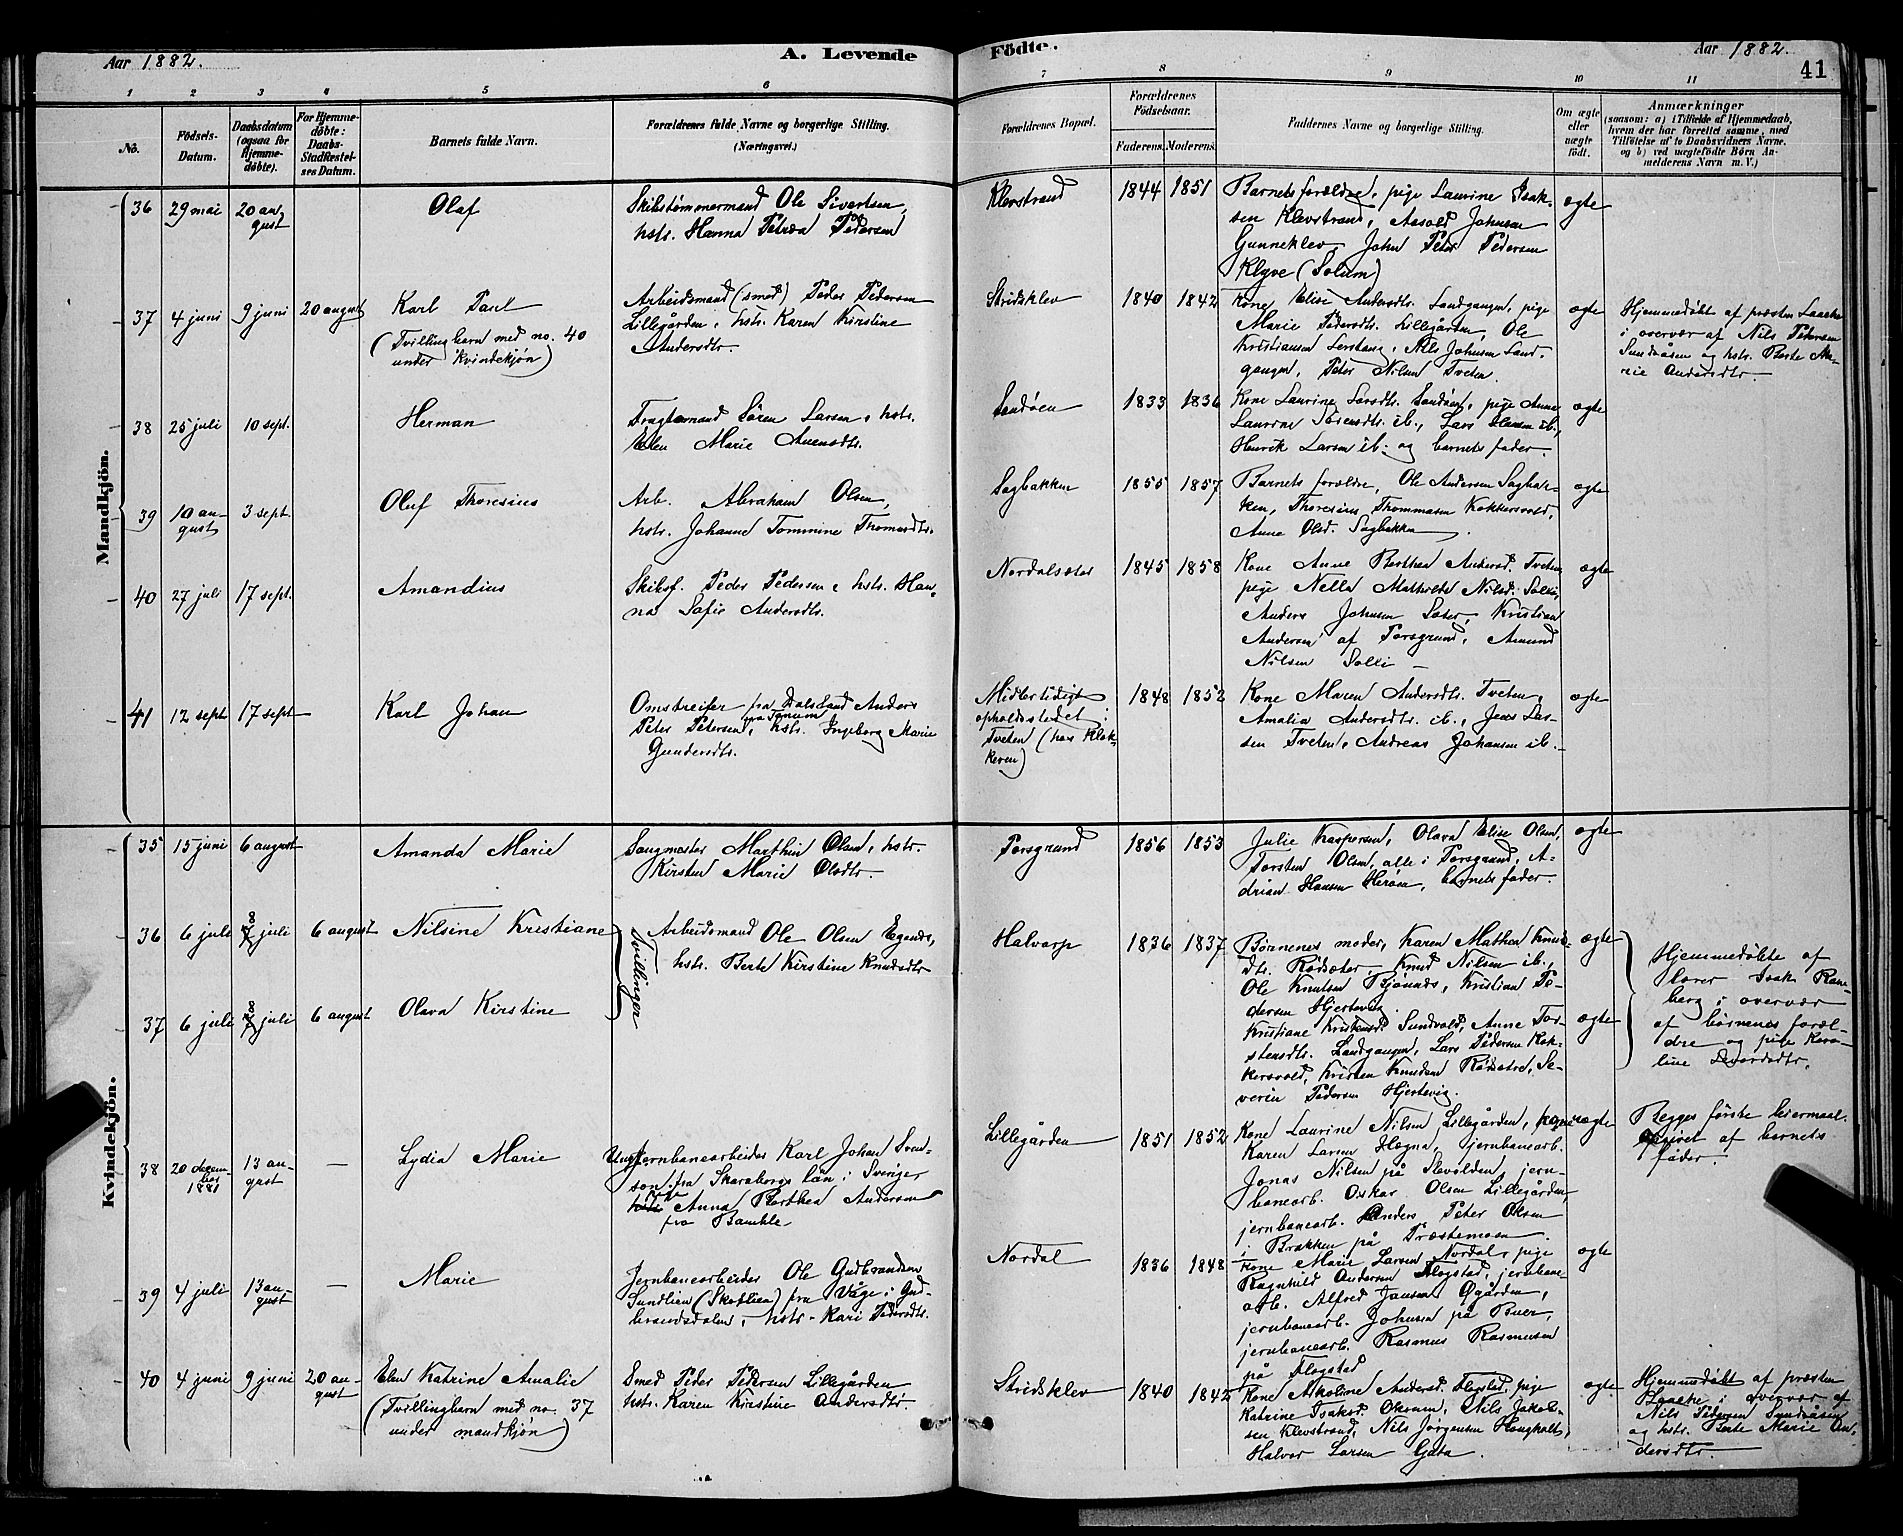 Aar 1882.
A. Levende
Födte.
Aar 1882.
41
1 2 3 4 5 6 7 8 9 10 11
No.
Födsels-
Datum.
Daabsdatum
(ogsaa for
Hjemme-
döbte).
For Hjemme-
döbte:
Daabs-
Stadfæstel-
ses Datum.
Barnets fulde Navn.
Forældrenes fulde Navne og borgerlige Stilling.
(Næringsvei.)
Forældrenes Bopæl.
Forældrenes
Födselsaar.
Faderens. Moderens.
Faddernes Navne og borgerlige Stilling.
Om ægte
eller
uægte
födt.
Anmærkninger
(saasom: a) i Tilfælde af Hjemmedaab,
hvem der har forrettet samme, med
Tilföielse af to Daabsvidners Navne.
og b) ved uægtefödte Börn An-
melderens Navn m. V.)
Mandkjön.
36
29 mai
20 au-
gust
Olaf
Skibstømmermand Ole Sivertsen,
hstr. Hanna Petrea Pedersen
Klevstrand
1844
1851
Barnets forældre, pige Laurine Isak-
sen Klevstrand, Aasold Johnsen
Gunneklev, John Peter Pedersen
Klyve (Solum)
ægte
37
4 juni
9 juni
20 august
Karl Paul
(Tvillingbarn med no. 40
under Kvindekjøn)
Arbeidsmand (smed) Peder Pedersen
Lillegården, hstr. Karen Kirstine
Andersdtr.
Stridsklev
1840
1842
Kone Elise Andersdtr. Landgangen, pige
Marie Pedersdtr. Lillegården, Ole
Kristiansen Lerstang, Nils Johnsen Land-
gangen, Peter Nilsen Tveten.
ægte
Hjemmedøbt af presten Laache
i overvær af Nils Petersen
Sundåsen og hstr. Berte Ma-
rie Andersdtr.
38
25 juli
10 sept.
Herman
Fragtemand Sören Larsen, hstr.
Elen Marie Arensdtr.
Sandöen
1833
1836
Kone Laurine Larsdtr. Sandöen, pige Anne
Laurine Sörensdtr. ib., Lars Hansen ib.,
Henrik Larsen ib. og barnets fader.
ægte
39
10 au-
gust
3 sept
Oluf Thoresius
Arb. Abraham Olsen,
hstr. Johanne Tommine Thomasdtr.
Sagbakken
1855
1857
Barnets forældre, Ole Andersen Sagbak-
ken, Thoresius Thommasen Kokkersvold,
Anne Olsd. Sagbakken.
ægte
40
27 juli
17 sept.
Amandius
Skibsf. Peder Pedersen, hstr. Han-
na Sofie Andersdtr.
Nordalsæter
1845
1858
Kone Anne Berthea Andersd. Tveten,
pige Nella Mathilde Nilsd. Solli,
Anders Johnsen Sæter, Kristian
Andersen af Porsgrund, Amund
Nilsen Solli
ægte
41
12 sept
17 sept
Karl Johan
Omstreifer fra Dalsland Anders
Peter Petersen, hstr. Ingeborg Marie
Gundersdtr.
Midlertidigt
opholdssted i
Tveten (hos Klok-
keren)
1848
1852
Kone Maren Andersdtr. Tveten,
Amalia Andersdtr. ib., Jens Lar-
sen Tveten, Andreas Johansen ib.
ægte
Kvindekjön.
35
15 juni
6 august
Amanda Marie
Saugmester Marthin Olsen, hstr.
Kirsten Marie Olsdtr.
Porsgrund
1856
1853
Julie Kaspersen, Olava Elise Olsen,
Torsten Olsen, alle i Porsgrund, A-
drian Hansen Heröen, barnets fader.
ægte
36
6 juli
8 juli
6 august
Nilsine Kristiane
Tvillinger
Arbeidsmand Ole Olsen Egends,
hstr. Berte Kirstine Knudsdtr
Halvarp
1836
1837
Børnenes moder, Karen Mathea Knuds-
dtr. Rödsæter, Knud Nilsen ib.,
Ole Knutsen Bjönnes, Kristian Pe-
dersen Hjertevig
ægte
Hjemmedøbte af
lærer Isak Ram-
berg i overvær
af børnenes foræl-
dre og pige Karo-
line
37
6 juli
8 juli
6 august
Olava Kirstine
Kristiane Kristensd. Sundvold, Anne Tor-
stensdtr. Landgangen, Lars Pedersen Kok-
kersvold, Kristen Knudsen Rödsætre, Se-
verin Pedersen Hjertevig.
ægte
38
20 decem-
ber
1881
13 au-
gust
—
Lydia Marie
Jernbanearbeider Karl Johan Sven-
son fra Skaraborgs län i Sverige
Anna Berthea Andersen
fra Bamble
Lillegården
1851
1852
Kone Laurine Nilsen Lillegården,
Karen Larsen Hogna, jernbanearb.
Jonas Nilsen på Slevolden, jern-
banearb. Oskar Olsen Lillegården,
jernbanearb. Anders Peter Olsen
i Brakken på Præstemoen.
uægte
Begges første leiermaal.
Opgivet af barnets
fader.
39
4 juli
13 au-
gust
—
Marie
Jernbanearbeider Ole Gudbrandsen
Sundlien (Skotlien) fra Våge i Gud-
brandsdalen, hstr. Kari Pedersdtr.
Nordal
1836
1848
Kone Marie Larsen Nordal, pige
Ragnhild Andersen Flogstad, jernbane-
arb. Alfred Jansen Ögården,
jernbanearb. Johnsen på Buer,
jernbanearb. Rasmus Rasmusen
på Flogstad
ægte
40
4 juni
9 juni
20 au-
gust
Elen Katrine Amalie
(Tvillingbarn med no. 37
under mandkjøn)
Smed Peder Pedersen Lillegården
hstr. Karen Kirstine Andersdtr.
Stridsklev
1840
1842
Kone Nikoline Andersd. Flogstad, pige
Katrine Isaksd. Oksum, Nils Jakob-
sen Klevstrand, Nils Jørgensen Haugholt,
Halvor Larsen Gata.
ægte
Hjemmedøbt af præsten
Laache i overvær af
Nils Pedersen Sundåsen
og hstr. Berte Marie An-
dersdtr.